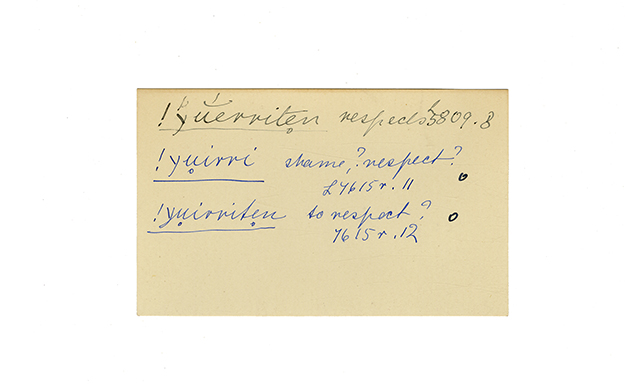 !χu̯érritẹn respects 5809.8
!χu̯irri shame,? respect?
L 4615 r. 11
!χu̯irritẹn to respect?
4615 r. 12